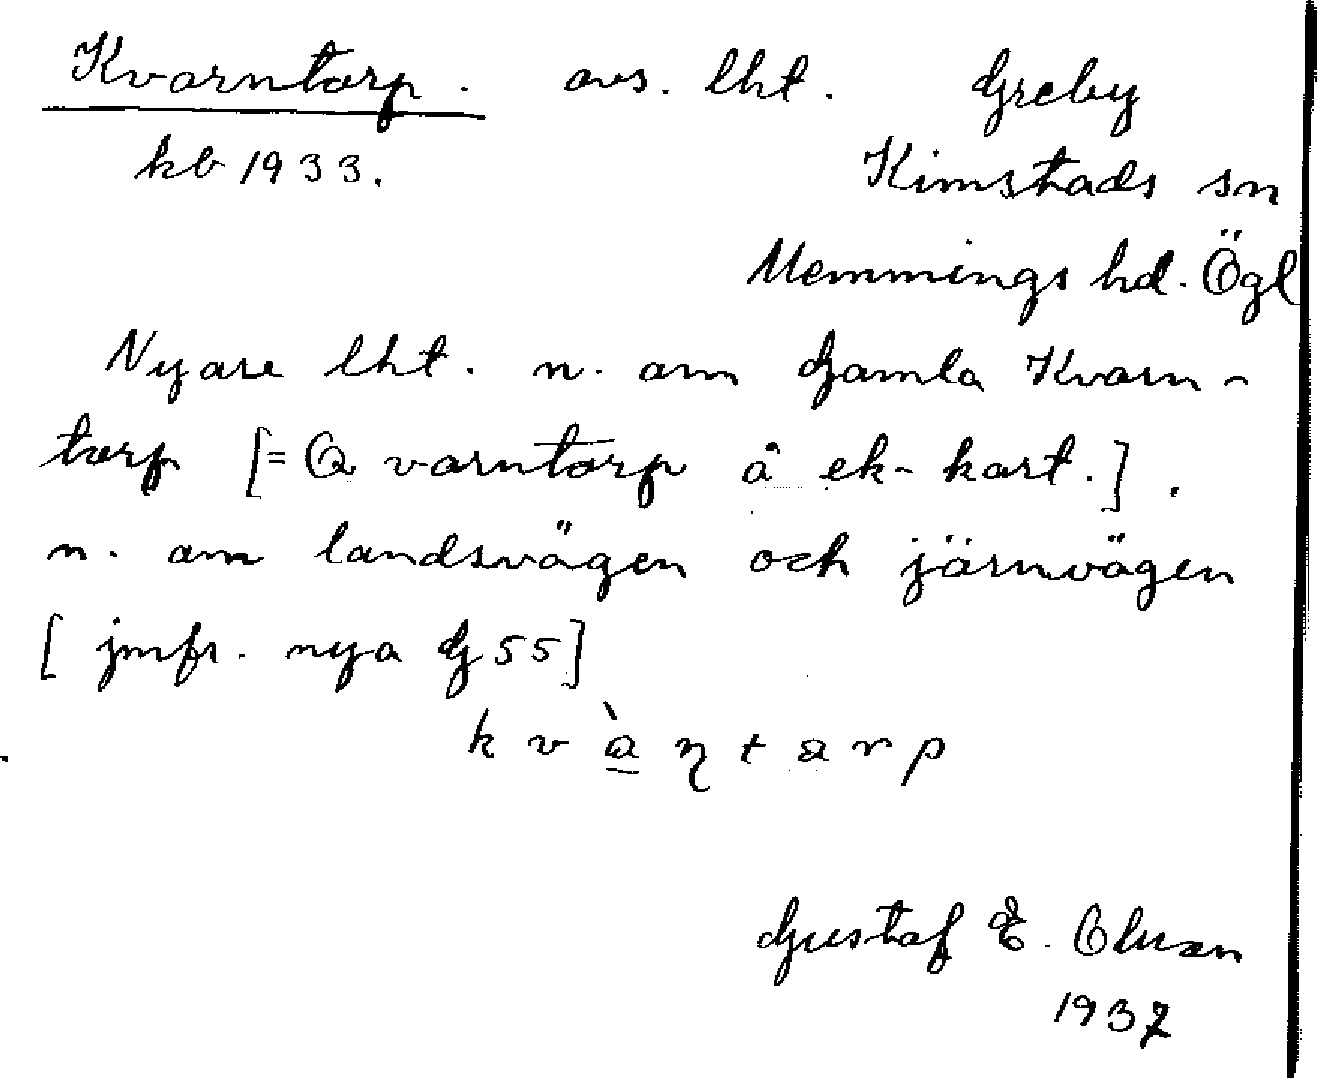 Kvarntorp. avs. lht. Greby
kb 1933. Kimstads sn
Memmings hd. Ögl
Nyare lht. n. om Gamla Kvarn-
torp [= Qvarntorp å ek-kart.].
n. om landsvägen och järnvägen
[jmfr. nya G 55]
kvàṇtarp
Gustaf E. Olsson
1937